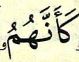 كَأَنَّهُمُۥ